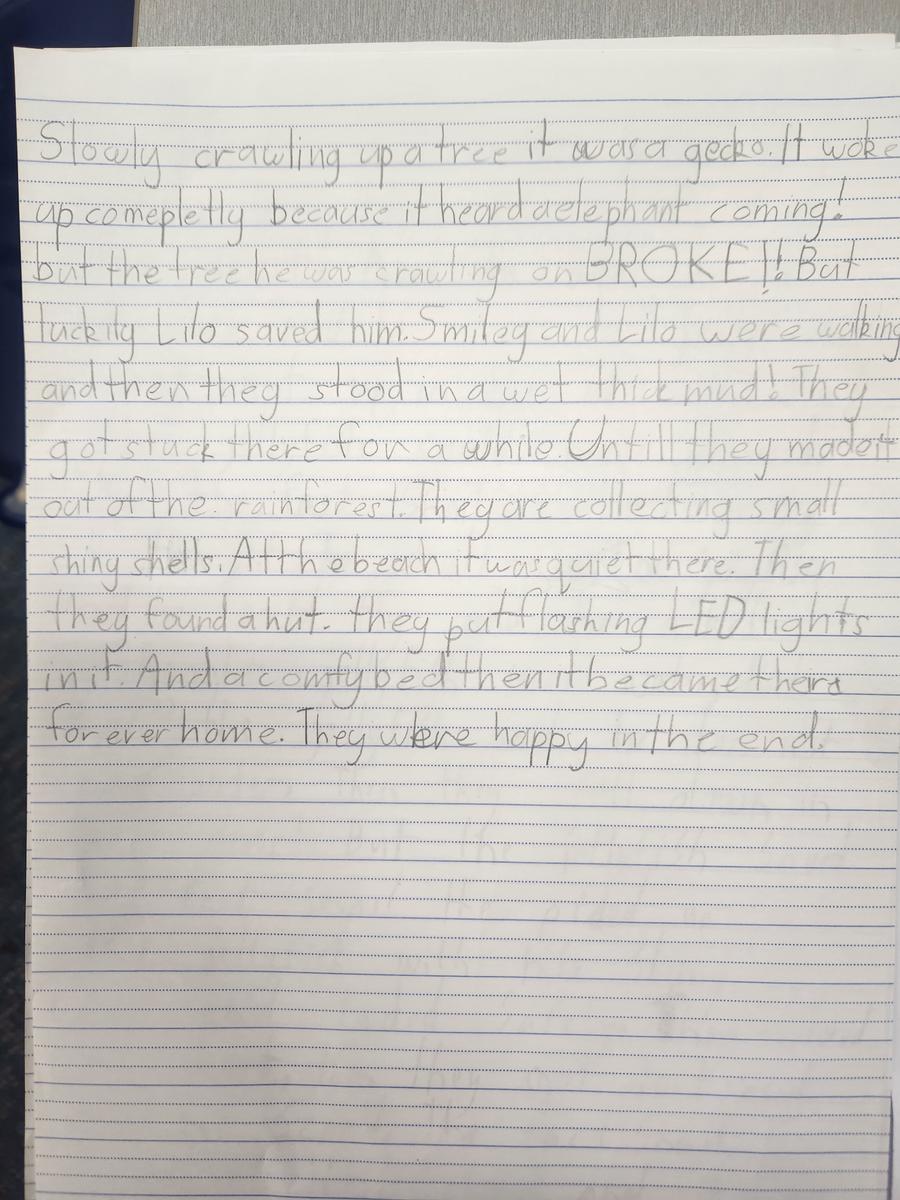 Slowly crawling up a tree it was a gecko. It woke
up comepletly because it heard a elephant coming!
but the tree he was crawling on BROKE!! But
luckily Lilo saved him. Smiley and Lilo were walking
and then they stood in a wet thick mud! They
got stuck there for a while. Untill they made it
out of the rainforest. They are collecting small
shiny shells. At the beach it was quiet there. Then
they found a hut. they put flashing LED lights
in it. And a comfy bed then it became there
for ever home. They were happy in the end.